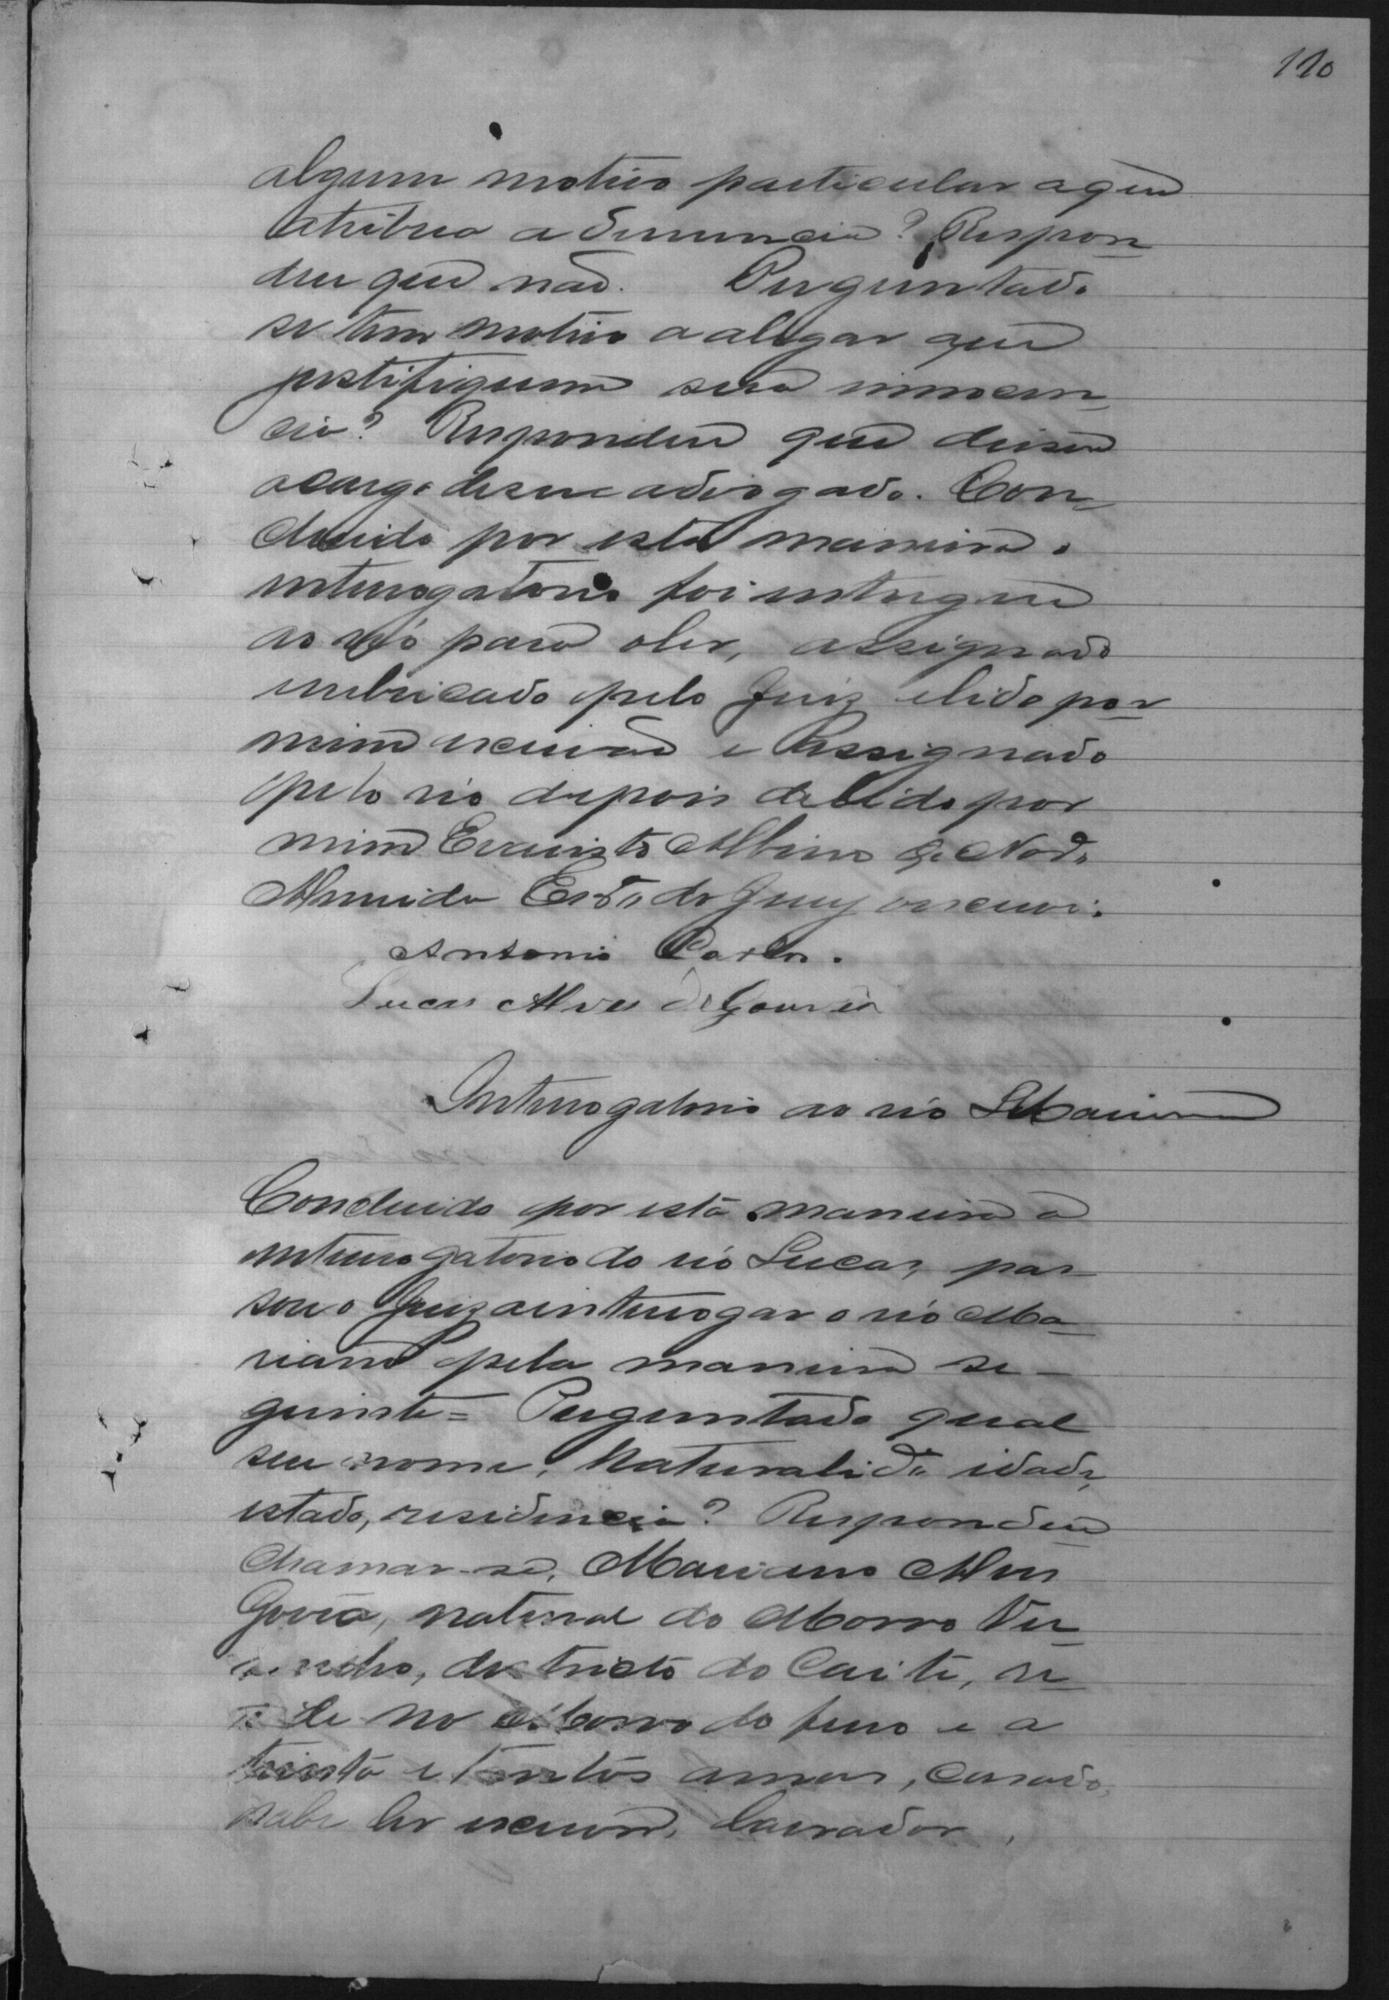 110
algum motivo particular a que
atribua a denuncia? Respon
deu que não. Perguntado
se tem motivo a alegar que
justifiquem sua innocen
cia? Respondeu que deixava
a cargo de seu advogado. Con
cluido por esta maneira o
interrogatorio foi entregue
ao réo para o ler, assignado
e rubricado pelo Juiz e lido por
mim escrivão e assignado
pelo réo depois de lido por
mim Evaristo Albino de
Almeida Escrivão do Jury o escrevi.
Antonio Carlos.
Lucas Alves de Gouvea
Interrogatorio ao réo Mariano
Concluido por esta maneira o
interrogatorio do réo Lucas, pas
sou o Juiz a interrogar o réo Ma
riano pela maneira se
guinte = Perguntado qual
seu nome, naturalidade idade,
estado, residencia? Respondeu
chamar-se, Mariano Alves
Govea, natural do Morro Ver
melho, districto do Caité, re
side no Morro do ferro e a
trinta e tantos annos, casado,
sabe ler escrever, lavrador,